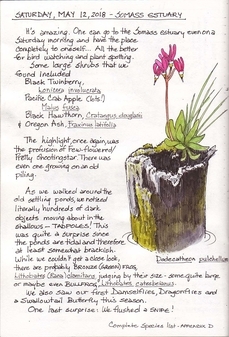 SATURDAY, MAY 12, 2018 - SOMASS ESTUARY
It's amazing. One can go to the Somass estuary even on a
Saturday morning and have the place
completely to oneself... All the better
for bird watching and plant spotting.
Some large shrubs that we
found included
Black Twinberry,
Lonicera involucrata
Pacific Crab Apple (lots!)
Malus fusca
Black Hawthorn, Crataegus douglasii
& Oregon Ash, Fraxinus latifolia
The highlight, once again, was
the profusion of Few-flowered/
Pretty Shootingstar. There was
even one growing on an old
piling.
As we walked around the
old settling ponds, we noticed
literally hundreds of dark
objects moving about in the
shallows - TADPOLES! This
was quite a surprise since
the ponds are tidal and therefore
at least somewhat brackish.
While we couldn't get a close look,
there are probably BRONZE (GREEN) FROG,
Lithobates (Rana) clamitans judging by their size - some quite large
or maybe even BULLFROG, Lithobates catesbeianus.
We also saw our first Damselflies, Dragonflies and
a Swallowtail Butterfly this season.
One last surprise: We flushed a snipe!
Dodecatheon pulchellum
Complete Species list - APPENDIX D